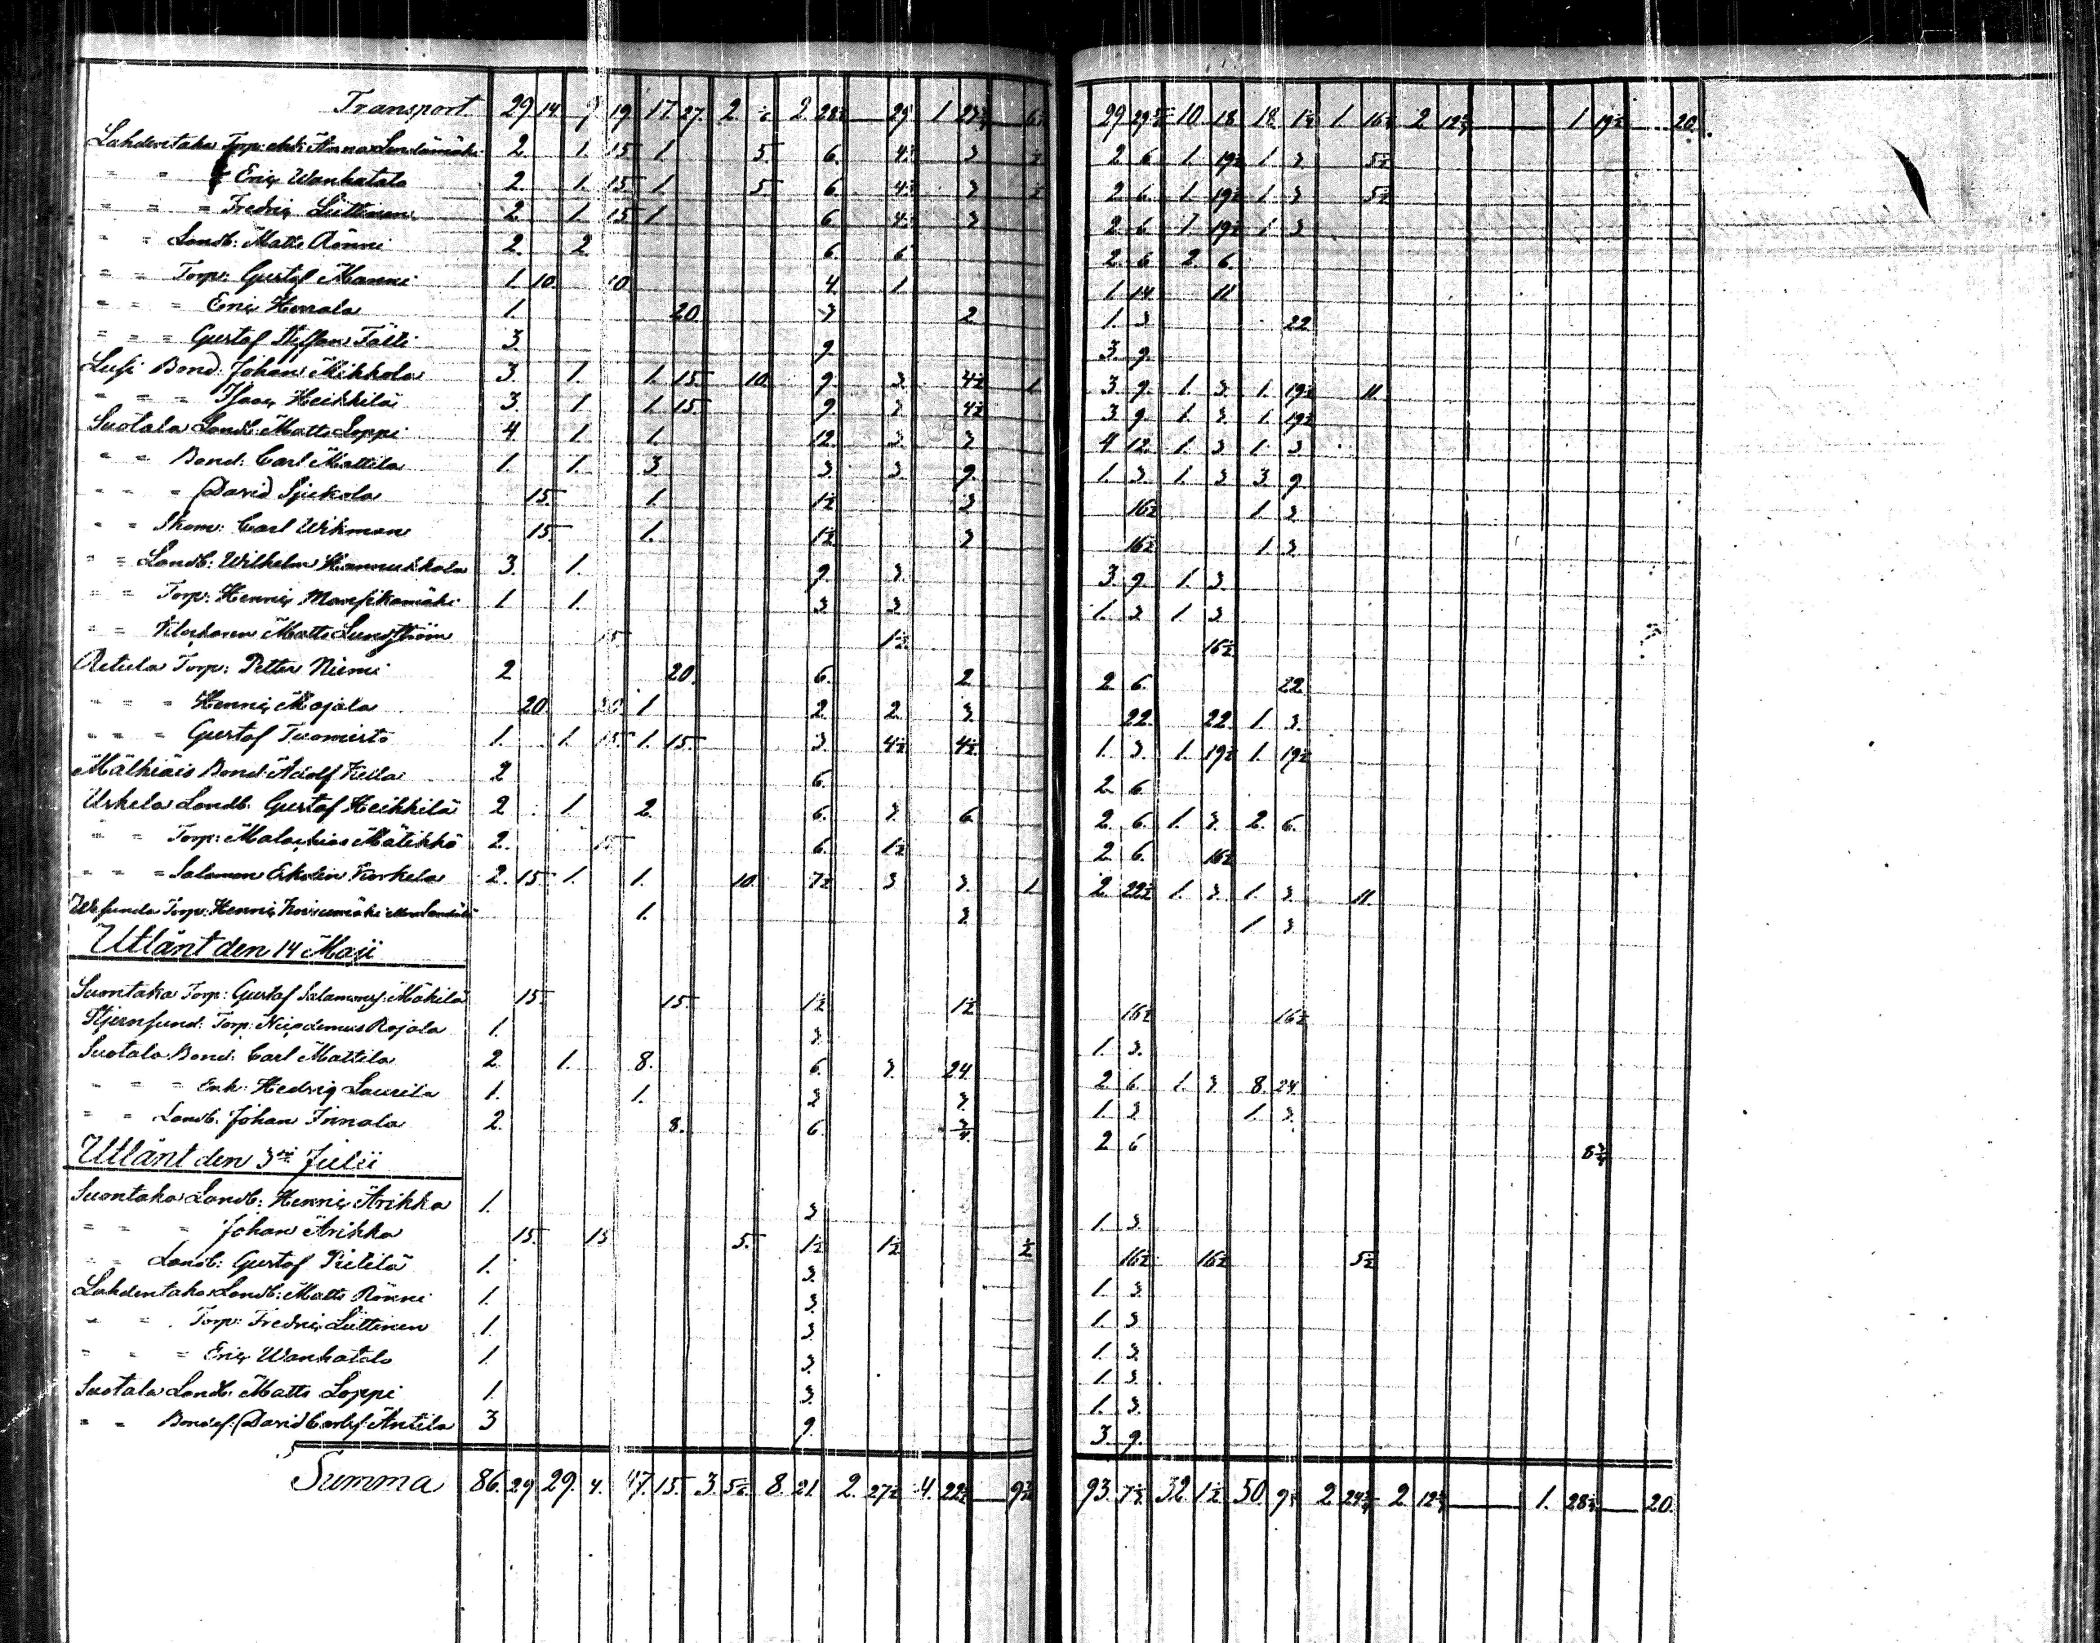 Transport 29 14 9 19 17 27 2 2 28½ 29 1 6 29 29½ 10 18 18 1 16½ 2 12¾ 1 19½ 20
Lahdentaka Torp: Enk: Anna 2 1 15 1 5 6 4½ 3 ½ 2 6 1 19½ 1 3 5½
" " " Eric Wanhatalo 2 1 15 1 5 6 4½ 3 ½ 2 6 1 19½ 1 3 5½
" " " Fredric Lüttinen 2 1 15 1 6 4½ 3 2 6 1 19½ 1 3
" " Landb: Matts Rönni 2 2 6 6 2 6 2 6
" " Torp: Gustaf Manni 1 10 10 4 1 1 14 11
" " " Eric Herrala 1 20 3 2 1 3 22
" " " Gustaf Staffans Tälli 3 9 3 9
Lusi Bond: Johan Mikkola 3 1 1 15 10 9 3 4½ 1 3 9 1 3 1 19½ 11
" " " Isaac Heikkilä 3 1 1 15 9 3 4½ 3 9 1 3 1 19½
Suotala Landb: Matts Loppi 4 1 1 12 3 3 4 12 1 3 1 3
" " Bond: Carl Mattila 1 1 3 3 3 9 1 3 1 3 3 9
" " " David Sjukola 15 1 1½ 3 16½ 1 3
" " Skom: Carl Wikman 15 1 1½ 3 16½ 1 3
" " Landb: Wilhelm Hannukkala 3 1 9 3 3 9 1 3
" " Torp: Henric Mansikamäki 1 1 3 3 1 3 1 3
" " Klockaren Matts Lundström 15 1½ 16½
Retula Torp: Petter Niemi 2 20 6 2 2 6 22
" " " Henric Mojala 20 20 1 2 2 3 22 22 1 3
" " " Gustaf Tuomisto 1 1 15 1 15 3 4½ 4½ 1 3 1 19½ 1 19½
Mälkiäis Bond: Adolf Killa 2 6 2 6
Uskela Landb: Gustaf Heikkilä 2 1 2 6 3 6 2 6 1 3 2 6
" " Torp: Malachias Mätikkö 2 15 6 1½ 2 6 16½
" " " Salomon Korkela 2 15 1 1 10 7½ 3 3 1 2 22½ 1 3 1 3 11
Torp: Henric 1 3 1 3
Utlånt den 14 Maji
Suontaka Torp: Gustaf Salomons: Mäkilä 15 15 1½ 1½ 16½ 16½
Stjernsund: Torp: Nicodemus Rojala 1 3 1 3
Suotala Bond: Carl Mattila 2 1 8 6 3 24 2 6 1 3 8 24
" " " Enk: Hedvig Laurila 1 1 3 3 1 3 1 3
" " Landb: Johan Finnala 2 8 6 ¾ 2 6 8¾
Utlånt den 3die Julii
Suontaka Landb: Henric Arikka 1 3 1 3
" " " Johan Arikka 15 15 5 1½ 1½ ½ 16½ 16½ 5½
" " Landb: Gustaf Pietilä 1 3 1 3
Lahdentaka Landb: Matts Rönni 1 3 1 3
" " Torp: Fredric Lüttinen 1 3 1 3
" " " Eric Wanhatalo 1 3 1 3
Suotala Landb: Matts Loppi 1 3 1 3
" " Bondes: David Carls: Antila 3 9 3 9
Summa 86 29 29 4 47 15 3 5 8 21 2 27½ 4 22½ 9¾ 93 7½ 32 1½ 50 9 2 24¾ 2 12¾ 1 28¼ 20